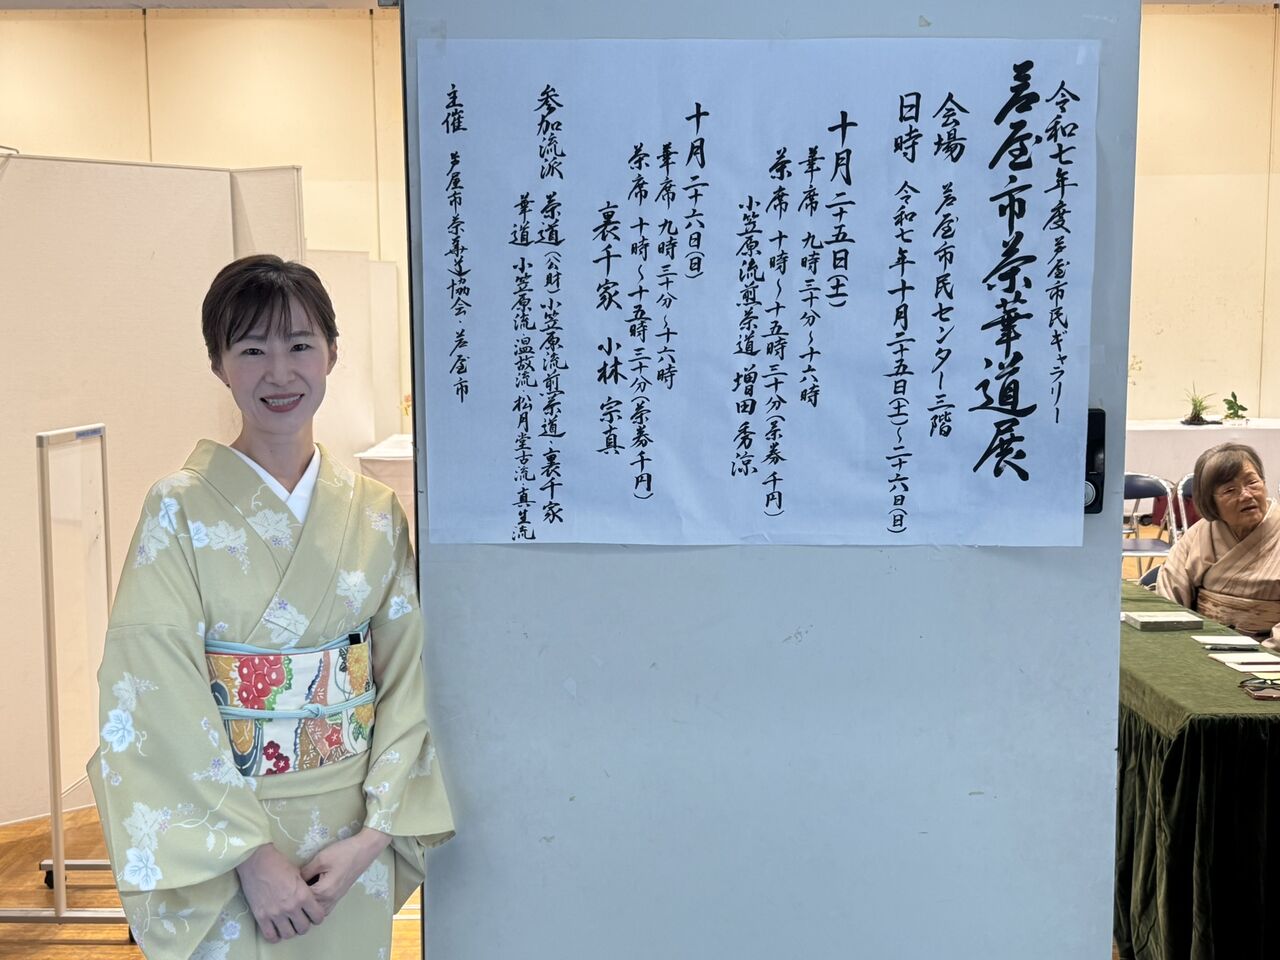 令和七年度 芦屋市民ギャラリー
芦屋市茶華道展
会場 芦屋市民センター三階
日時 令和七年十月二十五日(土)～二十六日(日)
十月二十五日(土)
華席 九時三十分～十六時
茶席 十時～十五時三十分(茶券千円)
小笠原流煎茶道 増田秀涼
十月二十六日(日)
華席 九時三十分～十六時
茶席 十時～十五時三十分(茶券千円)
裏千家 小林宗真
参加流派 茶道 (公財)小笠原流煎茶道・裏千家
華道 小笠原流・温故流・松月堂古流・真生流
主催 芦屋市茶華道協会・芦屋市